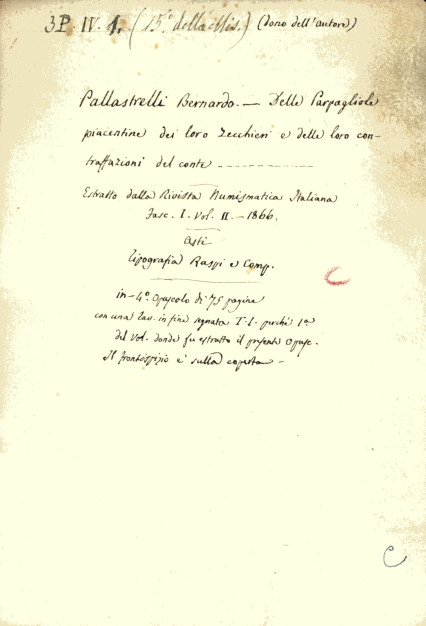 3P. IV. 1. (15ª della Mis.) (dono dell'autore)
Pallastrelli Bernardo. — Delle Parpagliole
piacentine dei loro Zecchieri e delle loro con-
traffazioni del conte
Estratto dalla Rivista Numismatica Italiana
Fasc. I. Vol. II. - 1866.
Asti
Tipografia Raspi e Comp.
in-4º Opuscolo di 75 pagine
con una tav. in fine segnata T-I. perchè 1ª
del Vol. donde fu estratto il presente Opusc.
Il frontespizio è sulla coperta -
C